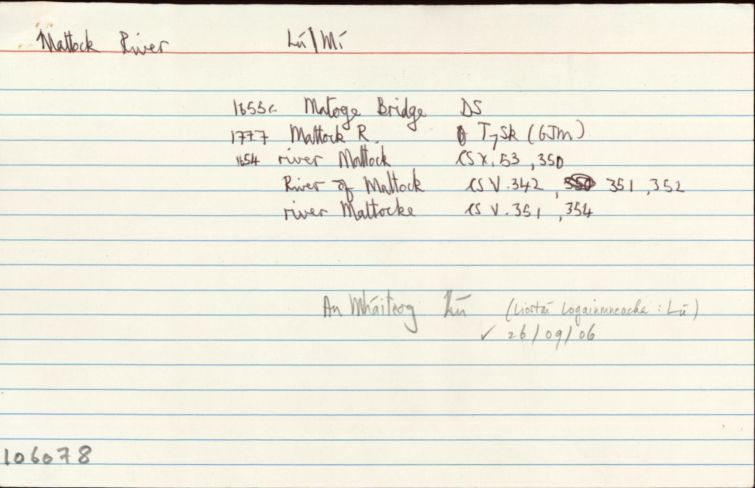 Mattock River Lú/Mí
1655c Matoge Bridge DS
1777 Mattock R. T⁊Sk (GJM)
1654 river Mattock CS X. 53, 350
River of Mattock CS V. 342, 351, 352
river Mattocke CS V. 351, 354
An Mháiteog Lú (Liostaí Logainmneacha: Lú)
✓ 26/09/06
106078